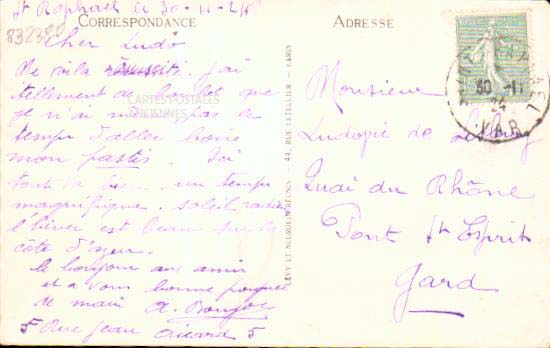 St Raphael le 30-11-24
CORRESPONDANCE
832380
Cher Ludo
Me voila réussité. J'ai
tellement de boulot que
je n'ai même pas le
temps d'aller boire
mon pastis. Ici
tout va bien. un temps
magnifique. soleil radieux
l'hiver est beau sur la
côte d'azur.
le bonjour aux amis
et a vous bonne poignée
de main A.
5 Rue Jean Aicard 5
CARTES POSTALES
ANCIENNES
LEVY ET NEURDEIN RÉUNIS - 44, RUE LETELLIER - PARIS
ADRESSE
Monsieur
Ludovic de
Quai du Rhône
Pont St Esprit
Gard
30 -11
24
VAR